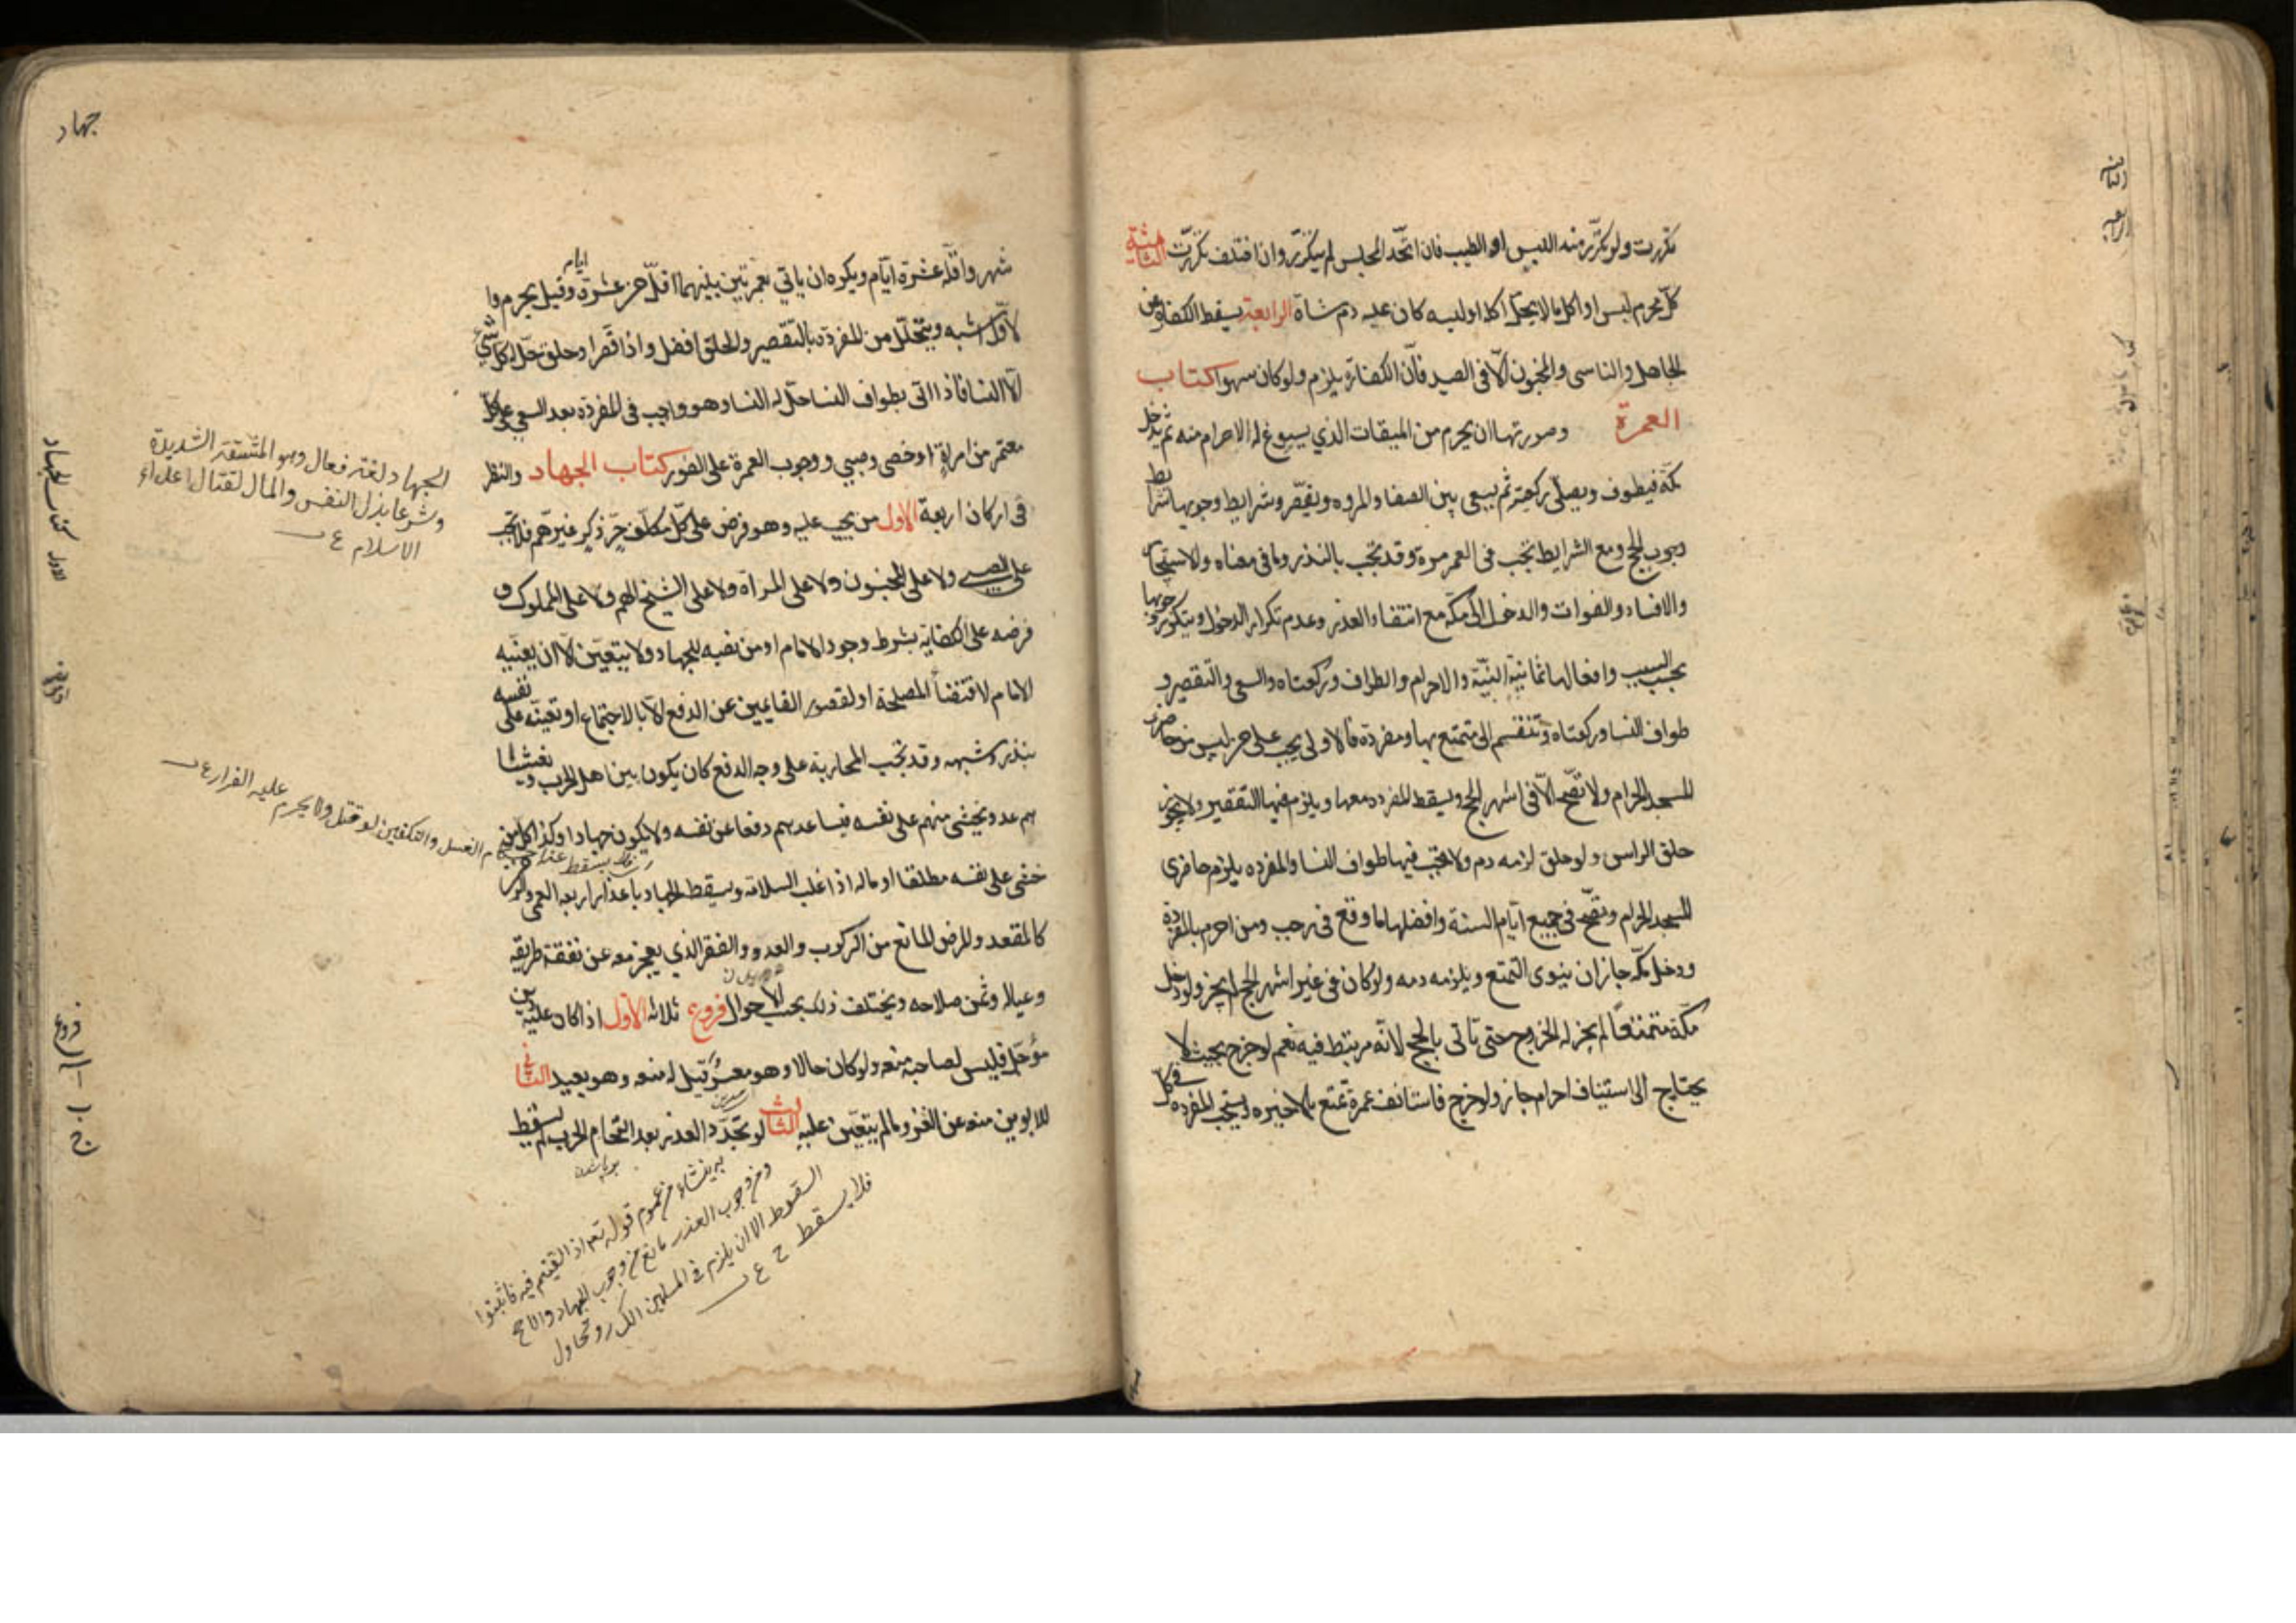 تكررت ولو تكرر منه اللبس او الطيب فان اتحد المجلس لم يتكرر وان اختلف تكررت الثالثة
كل محرم لبس او اكل ما لا يحل اكله او لبسه كان عليه دم شاة الرابعة يسقط الكفارة عن
الجاهل والناسى والمجنون الا فى الصيد فان الكفارة يلزم ولو كان سهوا كتاب
العمرة وصورتها ان يحرم من الميقات الذي يسوغ له الاحرام منه ثم يدخل
مكة فيطوف ويصلى ركعتيه ثم يسعى بين الصفا والمروه ويقصر وشرايط وجوبها شرايط
وجوب الحج ومع الشرايط تجب فى العمر مرة وقد تجب بالنذر وما فى معناه والاستيجار
والافساد والفوات والدخول الى مكة مع انتفاء العذر وعدم تكرار الدخول ويتكرر وجوبها
بحسب السبب وافعالها ثمانية النية والاحرام والطواف وركعتاه والسعى والتقصير و
طواف النسا وركعتاه وتنقسم الى متمتع بها ومفردة فالاولى يجب على من ليس من حاضرى
المسجد الحرام ولا تصح الا فى اشهر الحج ويسقط المفرده معها ويلزم فيها التقصير ولا يجوز
حلق الراس ولو حلق لزمه دم ولا يجب فيها طواف النسا والمفرده يلزم حاضرى
المسجد الحرام وتصح فى جميع ايام السنة وافضلها ما وقع فى رجب ومن احرم بالمفردة
ودخل مكة جاز ان ينوى التمتع ويلزمه دمه ولو كان فى غير اشهر الحج لم يجز ولو دخل
مكة متمتعا لم يجز له الخروج حتى يأتى بالحج لانه مرتبط فيه نعم لو خرج بحيث لا
يحتاج الى استيناف احرام جاز ولو خرج فاستانف عمرة تمتع بالاخيره ويستحب المفرده فى كل
جهاد
شهر واقله عشرة ايام ويكره ان ياتي بعمرتين بينهما اقل من عشرة ايام وقيل يحرم وا
لاول اشبه ويتحلل من المفردة بالتقصير والحلق افضل واذا قصر او حلق حل له كل شىء
الا النسا فاذا اتى بطواف النسا حل له النسا وهو واجب فى المفردة بعد السعي على كل
معتمر من امراة او خصى وصبي ووجوب العمرة على الفور كتاب الجهاد والنظر
فى اركان اربعة الاول من يجب عليه وهو فرض على كل مكلف حر ذكر غير هم فلا يجب
على الصبى ولا على المجنون ولا على المرأة ولا على الشيخ الهم ولا على المملوك و
فرضه على الكفاية بشرط وجود الامام او من نصبه للجهاد ولا يتعين الا ان يعنيه
الامام لاقتضاء المصلحة او لقصور القايمين عن الدفع الا بالاجتماع او تعينه على نفسه
بنذر وشبهه وقد تجب المحاربة على وجه الدفع كان يكون بين اهل الحرب ويغشا
هم عدو يخشى منهم على نفسه فيساعدهم دفعا عن نفسه ولا يكون جهادا وكذا كل من
خشى على نفسه مطلقا او ماله اذا غلب السلامة ويسقط الجهاد باعذار اربعه العمى والزمن
كالمقعد والمرض المانع من الركوب والعدو والفقر الذي يعجز معه عن نفقة طريقه
وعياله وثمن سلاحه ويختلف ذلك بحسب الاحوال فروع ثلاثه الاول اذا كان عليه دين
مؤجل فليس لصاحبه منعه ولو كان حالا وهو معسر قيل له منعه وهو بعيد الثانى
للابوين منعه عن الغزو ما لم يتعين عليه الثالث لو تجدد العذر بعد التحام الحرب لم يسقط
الجهاد لغة فعال وهو المشقة الشديدة
وشرعا بذل النفس والمال لقتال اعداء
الاسلام ع
الغسل والتكفين لو قتل ولا يحرم عليه الفرار ع
ينشاء من عموم قوله تعم اذا لقيتم فئة فاثبتوا
ومن وجوب العذر مانع من وجوب الجهاد والاصح
السقوط الا ان يلزم فى المسلمين
فلا يسقط ح ع